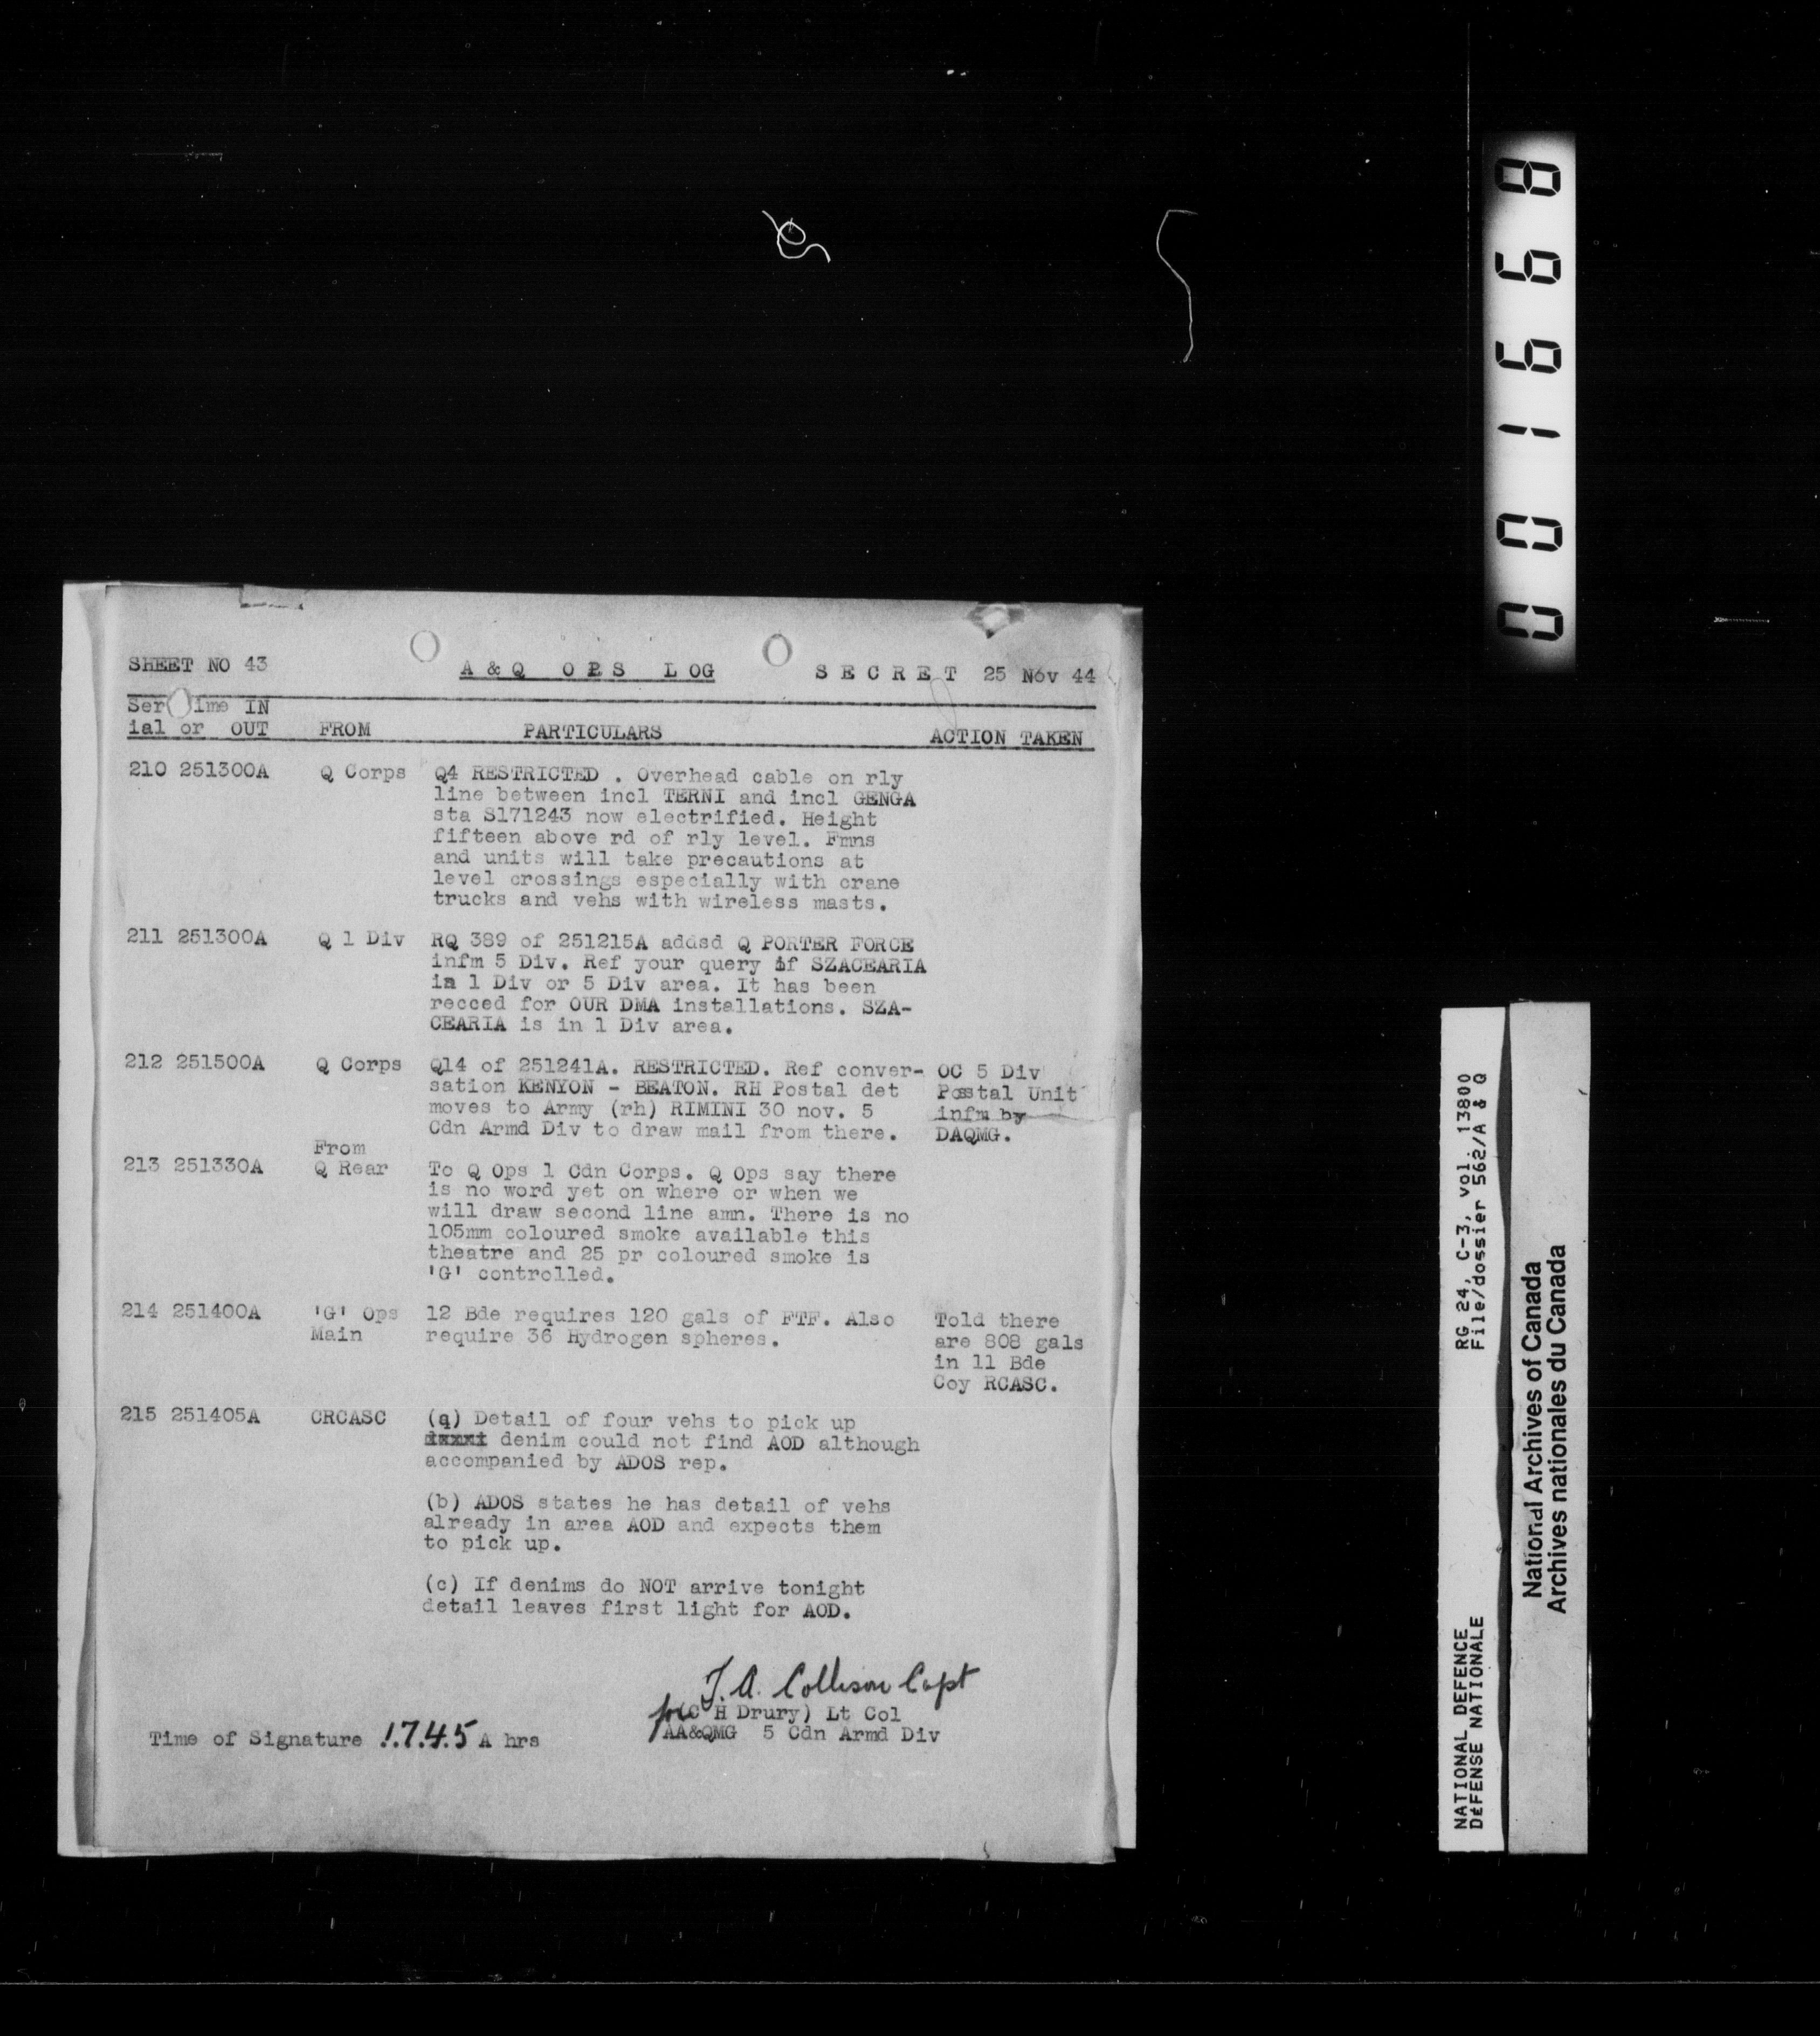 001668
SHEET NO 43
A & Q OPS LOG
SECRET 25 Nov 44
Ser Time IN
ial or OUT FROM PARTICULARS ACTION TAKEN
210 251300A Q Corps Q4 RESTRICTED . Overhead cable on rly
line between incl TERNI and incl GENGA
sta S171243 now electrified. Height
fifteen above rd of rly level. Fmns
and units will take precautions at
level crossings especially with crane
trucks and vehs with wireless masts.
211 251300A Q 1 Div RQ 389 of 251215A addsd Q PORTER FORCE
infm 5 Div. Ref your query if SZACEARIA
in 1 Div or 5 Div area. It has been
recced for OUR DMA installations. SZA-
CEARIA is in 1 Div area.
212 251500A Q Corps Q14 of 251241A. RESTRICTED. Ref conver- OC 5 Div
sation KENYON - BEATON. RH Postal det Postal Unit
moves to Army (rh) RIMINI 30 nov. 5 infm by
Cdn Armd Div to draw mail from there. DAQMG.
From
213 251330A Q Rear To Q Ops 1 Cdn Corps. Q Ops say there
is no word yet on where or when we
will draw second line amn. There is no
105mm coloured smoke available this
theatre and 25 pr coloured smoke is
'G' controlled.
214 251400A 'G' Ops 12 Bde requires 120 gals of FTF. Also Told there
Main require 36 Hydrogen spheres. are 808 gals
in 11 Bde
Coy RCASC.
215 251405A CRCASC (a) Detail of four vehs to pick up
denim could not find AOD although
accompanied by ADOS rep.
(b) ADOS states he has detail of vehs
already in area AOD and expects them
to pick up.
(c) If denims do NOT arrive tonight
detail leaves first light for AOD.
J.A. Collison Capt
for (C H Drury) Lt Col
Time of Signature 1745 A hrs AA&QMG 5 Cdn Armd Div
NATIONAL DEFENCE RG 24, C-3, vol. 13800
DÉFENSE NATIONALE File/dossier 562/A & Q
National Archives of Canada
Archives nationales du Canada